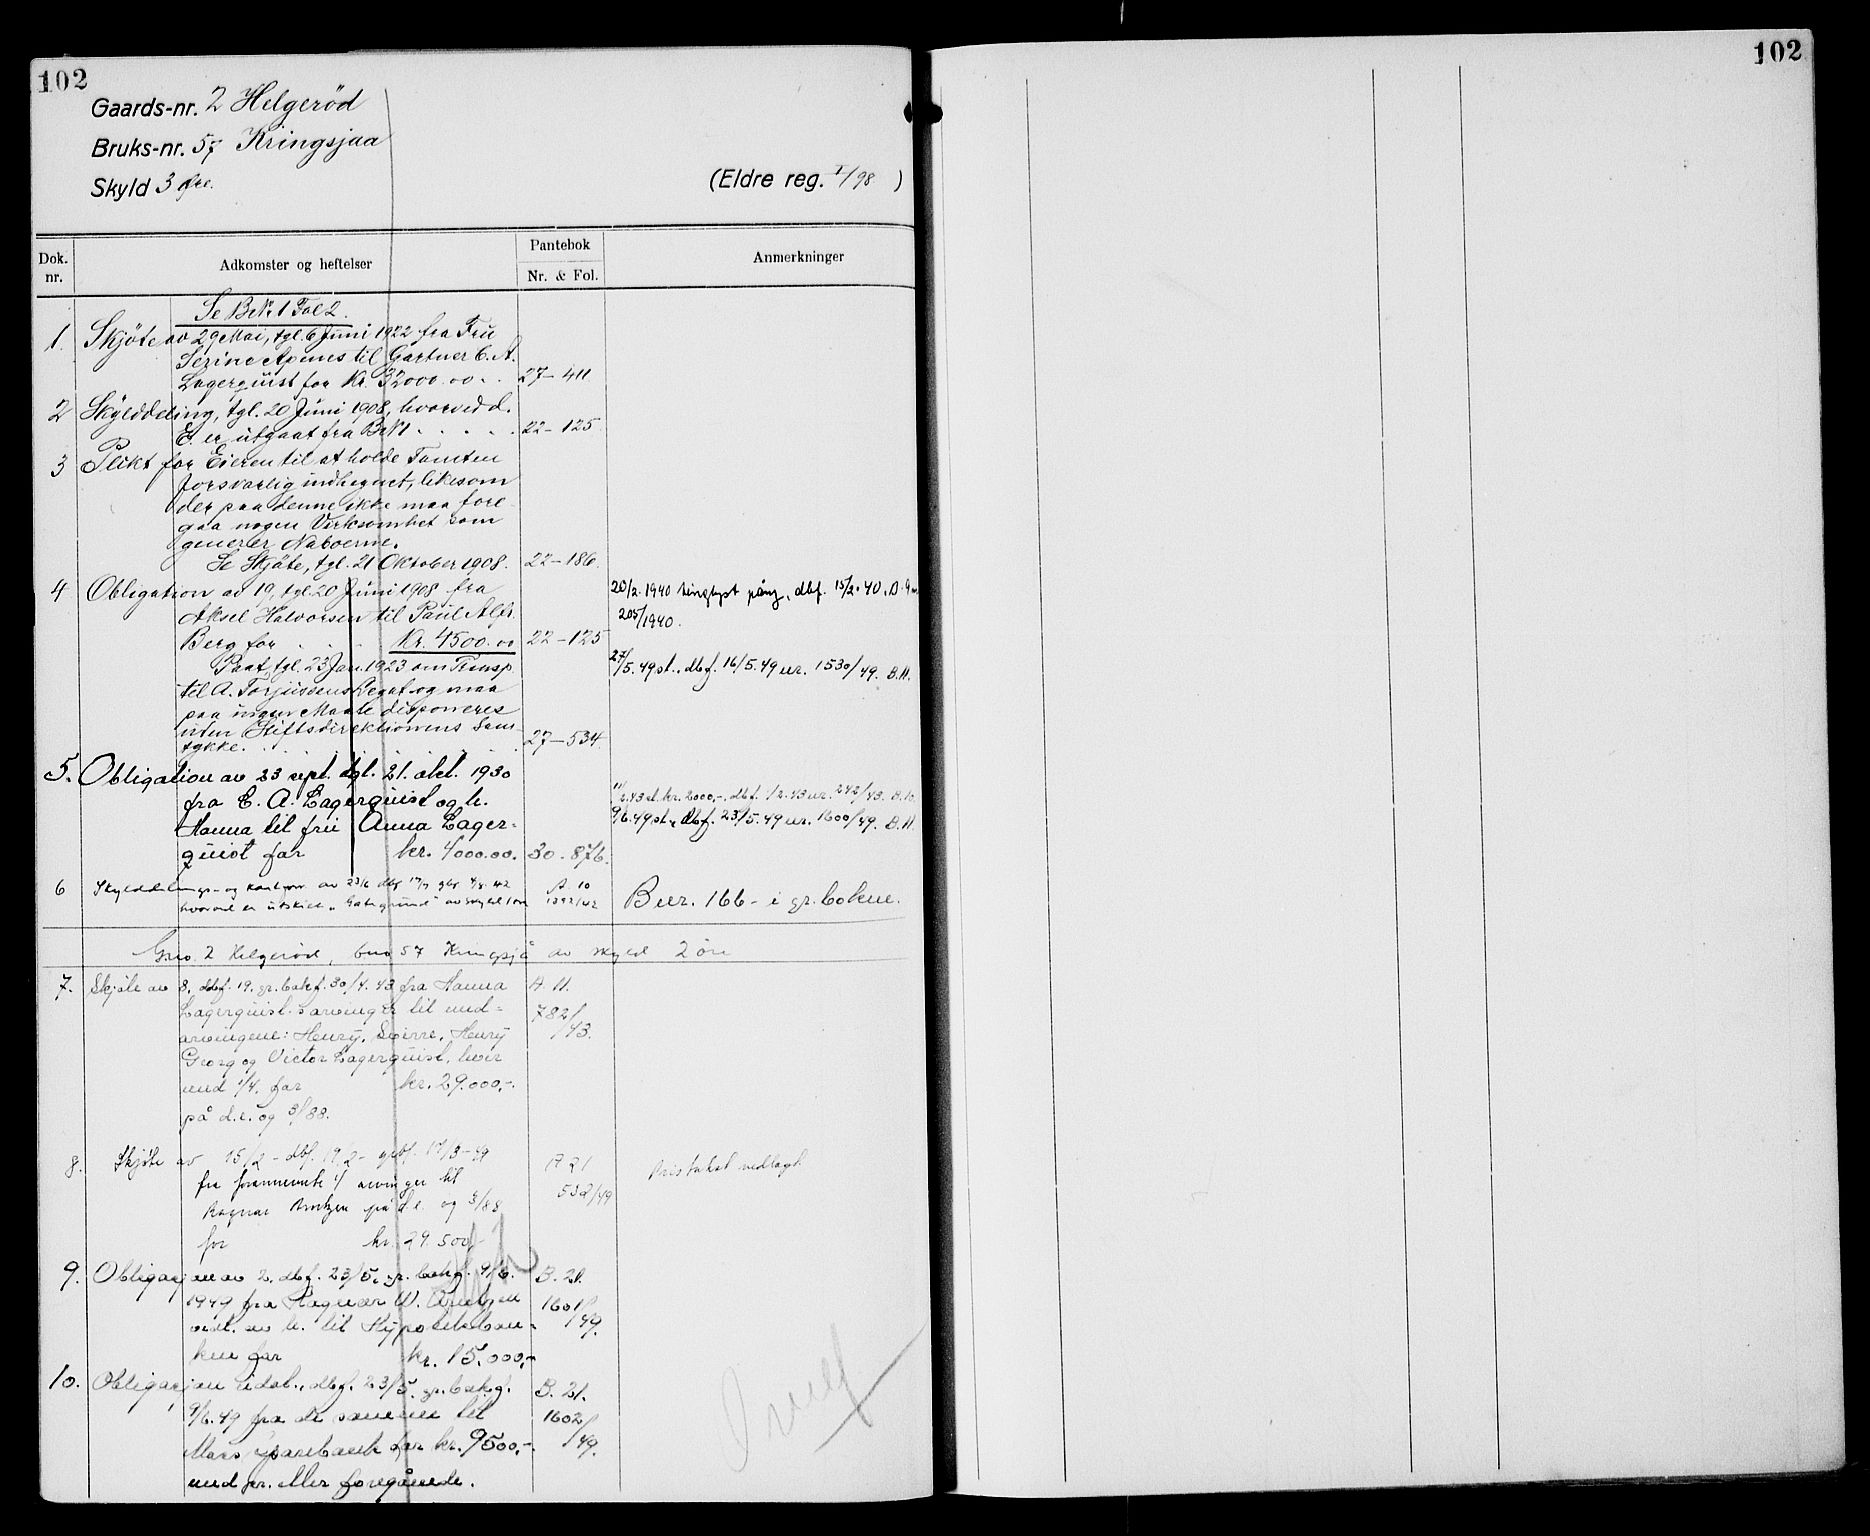 102
Gaards-nr. 2 Helgeröd
Bruks-nr. 57 Kringsjaa
Skyld 3 øre.
(Eldre reg. I/98 )
Dok. nr.
Adkomster og heftelser
Pantebok
Nr. & Fol.
Anmerkninger
Se BrNr 1 Fol 2.
1. Skjöte av 29 Mai, tgl. 6 Juni 1922 fra Frue
Serine Apenes til Gartner C. A.
Lagerquist for Kr. 32000.00 . . 27-411.
2 Skylddeling, tgl. 20 Juni 1908, hvorved d.
E. er utgaat fra BrN1 . . . . . 22-125.
3 Plikt for Eieren til at holde Tomten
forsvarlig indhegnet, likesom
der paa denne ikke maa fore-
gaa nogen Virksomhet som
generer Naboerne.
Se Skjöte, tgl. 21 Oktober 1908. 22-186.
4 Obligation av 19, tgl. 20 Juni 1908 fra
Aksel Halvorsen til Paul Alfr.
Berg for . . . Kr. 4500.00 22-125
Paat. tgl. 23 Jan. 1923 om Transp.
til A. Torjussens Legat og maa
paa ingen Maate disponeres
uten Stiftsdirektionens Sam-
tykke. . . . . . . 27-534.
20/2. 1940 tinglyst påtg., dbf. 15/2. 40, B. 9 nr.
205/1940.
27/5. 49 sl., dbf. 16/5. 49 nr. 1530/49. B. 11.
5. Obligation av 23 sept. tgl. 21. okt. 1930
fra C. A. Lagerquist og h.
Hanna til frü Anna Lager-
quist for kr. 4000.00. 30-876.
11/2.43 sl. kr. 2000,-. dbf. 1/2.43 nr. 242/43. B. 10.
9/6. 49 sl., dbf. 23/5. 49 nr. 1600/49. B. 11.
6 Skylddelings- og kartforr. av 23/6 dbf 17/7 gbf 4/8. 42
hvorved er utskilt av skyld 1 øre
A. 10
1292/42
Bnr. 166 - i gr. boken.
Gno. 2 Helgeröd, bno 57 Kringsjå av skyld 2 øre
7. Skjöte av 8. dbf. 19. gr. bokf. 30/4. 43 fra Hanna
Lagerquist's arvinger til med-
arvingene: Henry, Sverre, Henry
Georg og Victor Lagerquist, hver
med 1/4. for kr. 29.000,-.
på d.e. og 3/88.
A. 11.
782/43.
8. Skjöte av 15/2 - dbf. 19/2 - grbf. 17/3-49
fra forannevnte 4 arvinger til
Ragnar Arntzen på d.e. og 3/88
for kr. 29.500,-
A 21
532/49
Pristakst vedlagt.
9. Obligasjon av 2. dbf. 23/5, gr. bokf. 9/6.
1949 fra Ragnar W. Arntzen
vedt. av h. til Hypotekban-
ken for kr. 15.000,-
B. 21.
1601/49.
10. Obligasjon udat., dbf. 23/5. gr. bokf.
9/6. 49 fra de samme til
Moss Sparebank for kr. 9500,-.
med pr. etter foregående.
B. 21.
1602/49.
102